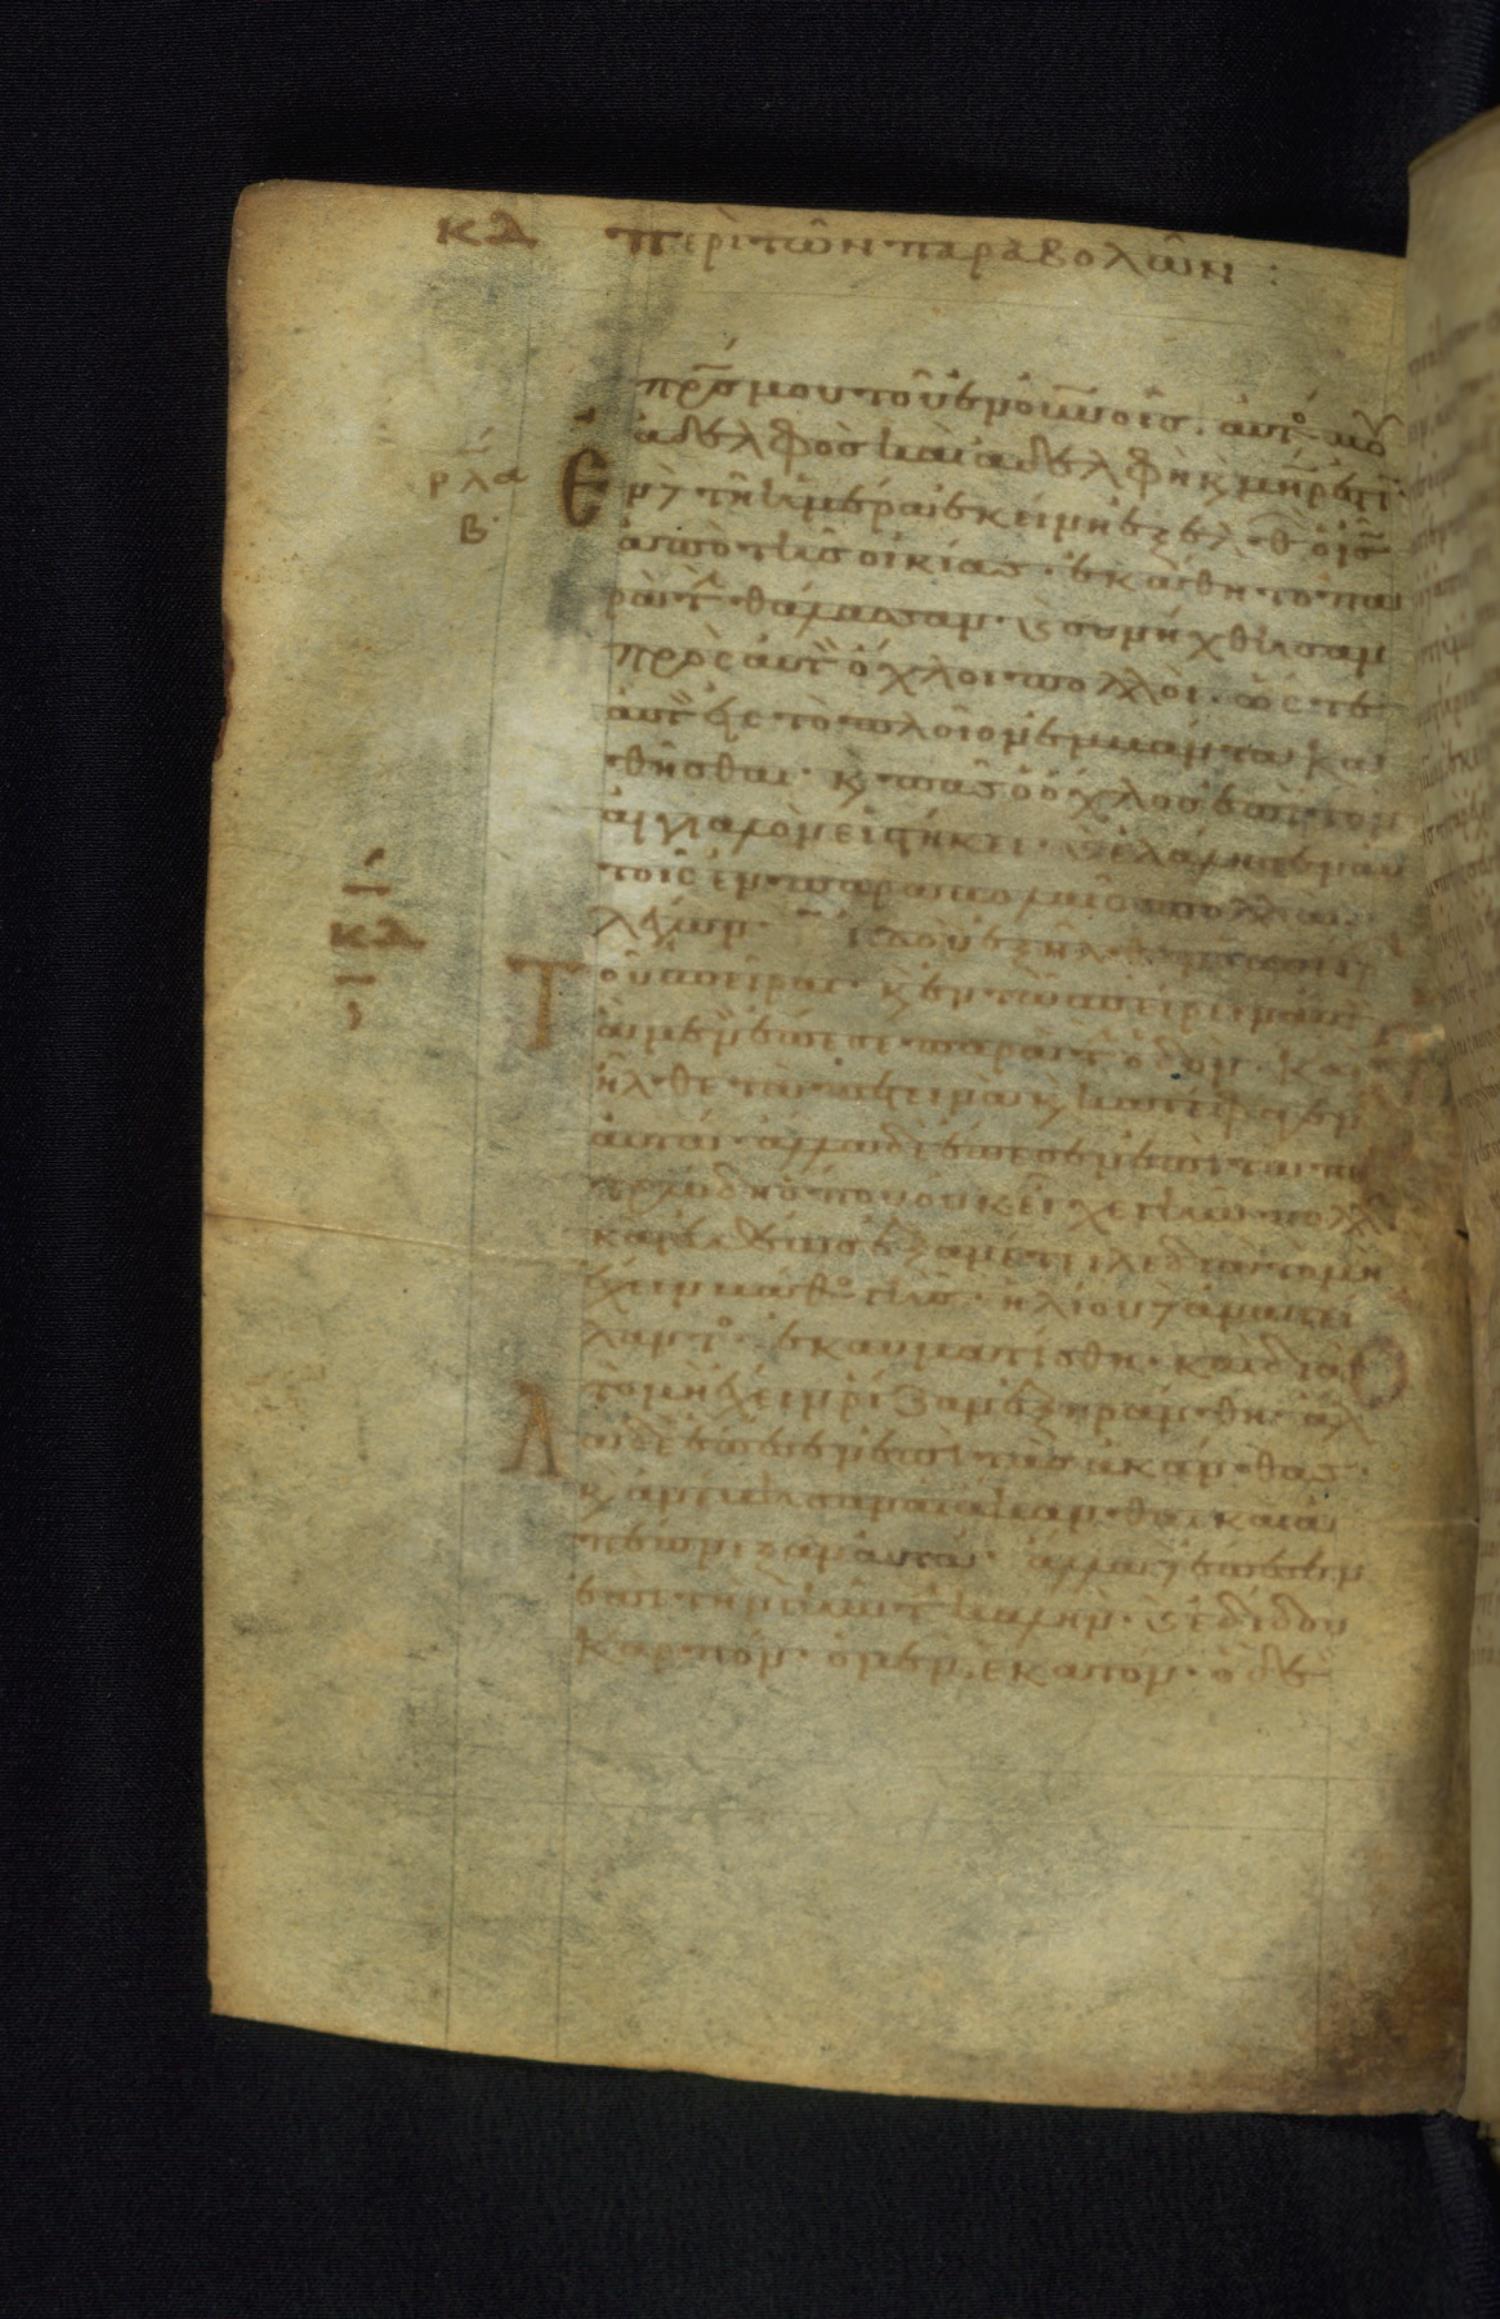 κδ περὶ τῶν παραβολῶν :
πρ̅ς μου τοῦ ἐν οὐ̅νοῖς. αὐτό μου
ἀδελφὸς καὶ ἀδελφὴ κ μη̅ρ ἐστί
ρλα
β
Ἐν τῆ ἡμέρα ἐκείνη ἐξελθ ὁ ι̅ς
ἀπὸ τῆς οἰκίας. ἐκάθητο πα
ρὰ τ θάλασσαν. κ συνήχθησαν
πρὸς αὐτ ὄχλοι πολλοὶ. ὥστε
αὐτ εἰς τὸ πλοῖον ἐμβάντα κα
θῆσθαι. κ πᾶς ὁ ὄχλος ἐπὶ τὸν
αἰγιαλὸν εἱστήκει. κ ἐλάλησεν αὐ
τοῖς ἐν παραβολαῖς πολλὰ.
λέγων. ἰδοὺ ἐξῆλθεν ὁ σπείρων
κδ
Τοῦ σπεῖραι. κ ἐν τῶ σπείρειν αὐτ
ἃ μὲν ἔπεσε παρὰ τ ὁδόν. καὶ
ἦλθε τὰ πετεινὰ κ κατέφαγεν
αὐτά. ἄλλα δὲ ἔπεσεν ἐπὶ τὰ πε
τρώδη ὅπου οὐκ εἶχε γῆν πολλ
καὶ εὐθέως ἐξανέτειλε διὰ τὸ μὴ
ἔχειν βάθο γῆς. ἡλίου δ ἀνατεί
λαντο ἐκαυματίσθη. καὶ διὰ
τὸ μὴ ἔχειν ῥίζαν ἐξηράνθη. ἄλ
Λα δὲ ἔπεσεν ἐπὶ τὰς ἀκάνθας.
κ ἀνέβησαν αἱ ἄκανθαι καὶ ἀ
πέπνιξαν αὐτά. ἄλλα δ ἔπεσεν
ἐπὶ τὴν γῆν τ καλήν. κ ἐδίδου
καρπόν. ὁ μὲν ἑκατόν. ὁ δὲ